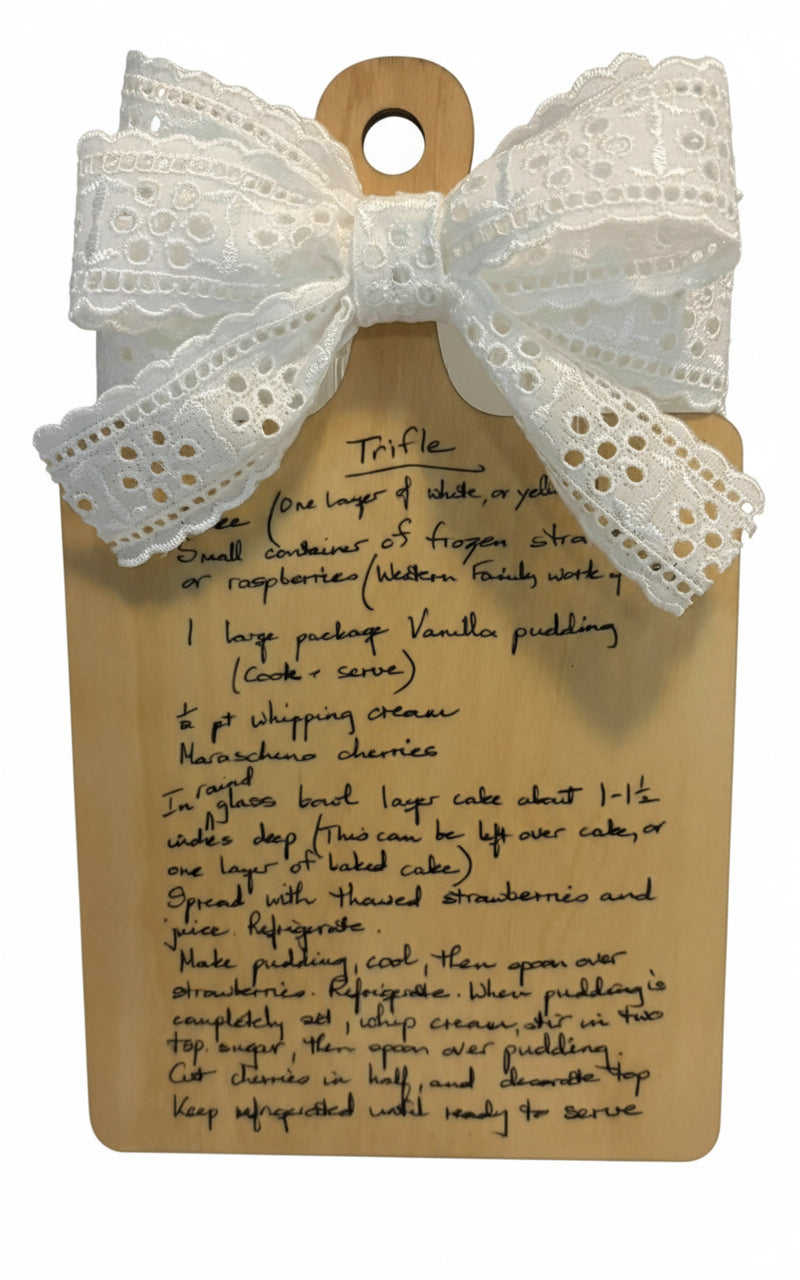 Trifle
(One layer of white, or
Small container of frozen
or raspberries (Western Family work
1 large package Vanilla pudding
(Cook + serve)
½ pt whipping cream
Maraschino cherries
In round glass bowl layer cake about 1-1½
inches deep (This can be left over cake, or
one layer of baked cake)
Spread with thawed strawberries and
juice. Refrigerate.
Make pudding, cool, then spoon over
strawberries. Refrigerate. When pudding is
completely set, whip cream, stir in two
sugar, then spoon over pudding.
Cut cherries in half, and decorate top
Keep refrigerated until ready to serve